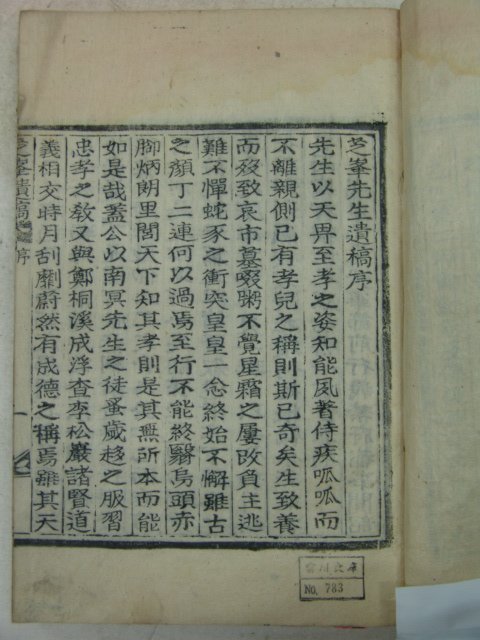 芝峯先生遺稿序
先生以天畀至孝之姿知能夙著侍疾呱呱而
不離親側已有孝兒之稱則斯已奇矣生致養
而歿致哀市墓啜粥不覺星霜之屢改負主逃
難不憚蛇豕之衝突皇皇一念終始不懈雖古
之顔丁二連何以過焉至行不能終翳焉頭亦
脚炳朗里閭天下知其孝則是其無所本而能
如是哉蓋公以南冥先生之徒蚤歲趍之服習
忠孝之敎又與鄭桐溪成浮查李松巖諸賢道
義相交時月刮劘蔚然有成德之稱焉雖其天
芝峯遺稿
序
一
No. 783